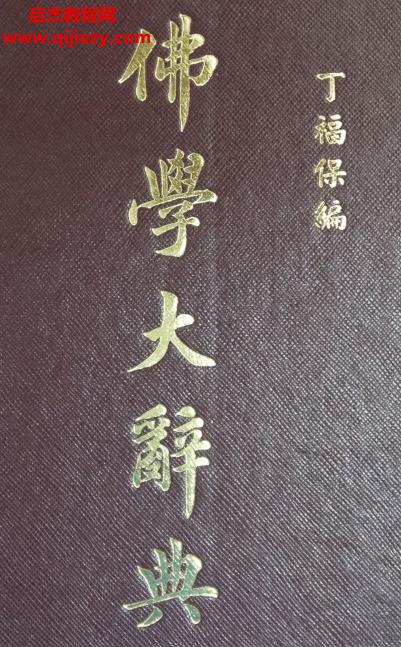 启杰教程网
www.qijiezy.com
丁福保編
佛學大辭典